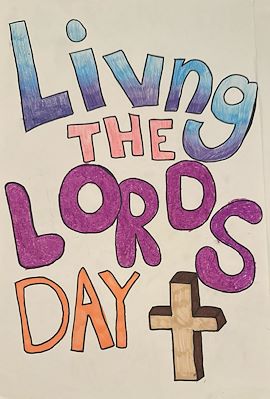 Livng
THE
LORDS
DAY